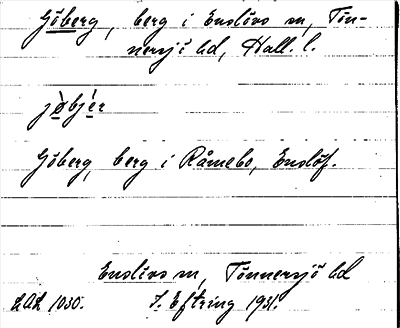 Göberg, berg i Enslövs sn, Tön-
nersjö hd, Hall. l.
jö̀bjér
Göberg, berg i Råmebo, Enslöf.
Enslövs sn, Tönnersjö hd
LAL 1030. S. Eftring 1931.